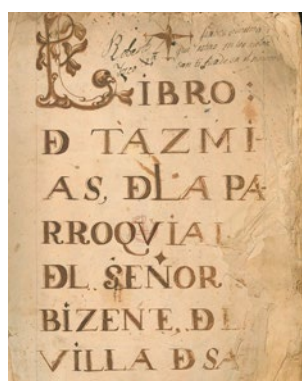 LIBRO:
Đ TAZMI-
AS, ĐLA PA-
RROQVIAL
ĐL SEÑOR
BIZENTE, Đ LA
VILLA Đ SA